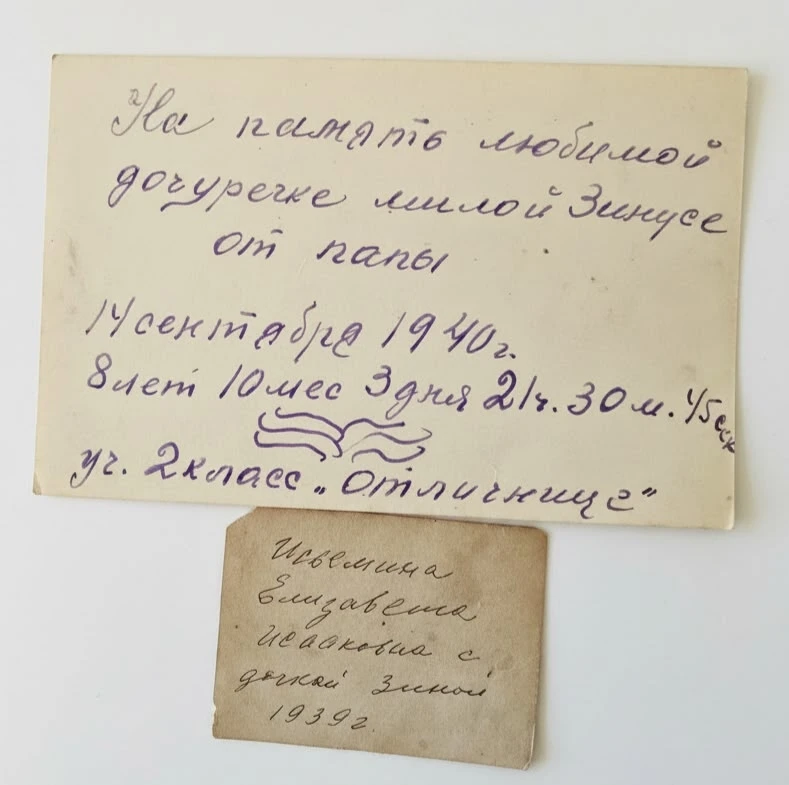 На память любимой
дочуречке милой Зинусе
от папы
14 сентября 1940 г.
8 лет 10 мес 3 дня 21 ч. 30 м. 45 сек
уч. 2 класс „отличнице"
Исьемина
Елизавета
Исааковна с
дочкой Зиной
1939 г.